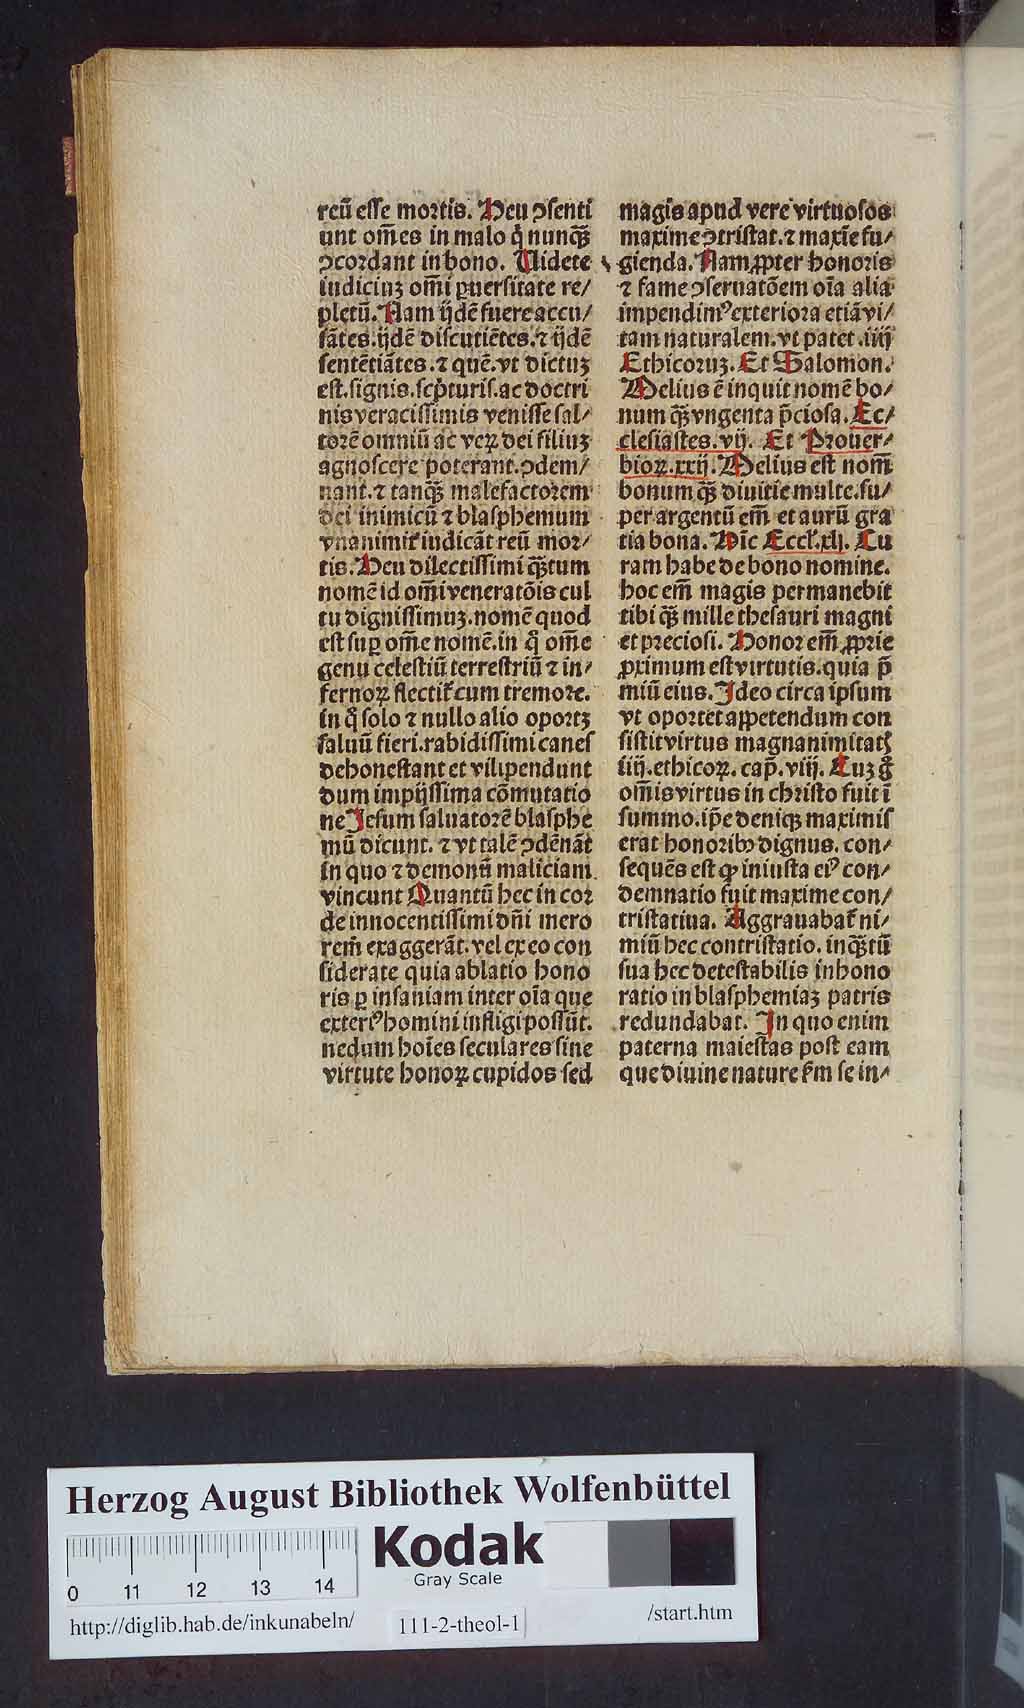 reū esse mortis. Heu ꝯsenti
unt om̄es in malo q̄ nunqȝ
ꝯcordant in bono. Videte
iudiciuȝ om̄i ꝑuersitate re⸗
pletū. Nam ijdē fuere accu⸗
sātes. ijdē discutiētes. ⁊ ijdē
sentētiātes. ⁊ quē. vt dictuȝ
est. signis. sc̓pturis. ac doctri
nis veracissimis venisse sal⸗
torē omniū ac veꝝ dei filiuȝ
agnoscere poterant. ꝯdem⸗
nant. ⁊ tanqȝ malefactorem
dei inimicū ⁊ blasphemum
vnanimit̓ iudicāt reū mor⸗
tis. Heu dilectissimi qȝtum
nomē id om̄i veneratōis cul
tu dignissimuȝ. nomē quod
est suꝑ om̄e nomē. in q̊ om̄e
genu celestiū terrestriū ⁊ in⸗
fernoꝝ flectit̓ cum tremore.
in q̊ solo ⁊ nullo alio oportȝ
saluū fieri. rabidissimi canes
dehonestant et vilipendunt
dum impijssima cōmutatio
ne Jesum saluatorē blasphe
mū dicunt. ⁊ vt talē ꝯdēnāt
in quo ⁊ demonū maliciam
vincunt Quantū hec in cor
de innocentissimi dn̄i mero
rem̄ exaggerāt. vel ex eo con
siderate quia ablatio hono
ris ꝑ insaniam inter oīa que
exteriꝰ homini infligi possūt.
nedum hoīes seculares sine
virtute honoꝝ cupidos sed
magis apud vere virtuosos
maxime ꝯtristat. ⁊ maxīe fu⸗
gienda. Nam ꝓpter honoris
⁊ fame ꝯseruatōem oīa alia
impendimꝰ exteriora etiā vi⸗
tam naturalem. vt patet .iiij
Ethicoruȝ. Et Salomon.
Melius ē inquit nomē bo⸗
num qȝ vngenta p̄ciosa. Ec⸗
clesiastes. vij. Et Prouer⸗
bioꝝ. xxij. Melius est nom̄
bonum qȝ diuitie multe. su⸗
per argentū em̄ et aurū gra
tia bona. Hīc Eccl̓. xlj. Cu
ram habe de bono nomine.
hoc em̄ magis permanebit
tibi qȝ mille thesauri magni
et preciosi. Honor em̄ ꝓprie
ꝓximum est virtutis. quia p̄
miū eius. Jdeo circa ipsum
vt oportet appetendum con
sistit virtus magnanimitatꝭ
iiij. ethicoꝝ. cap̄. viij. Cuȝ g̊
om̄is virtus in christo fuit ī
summo. ip̄e deniqȝ maximis
erat honoribꝰ dignus. con⸗
sequēs est ꝙ iniusta eiꝰ con⸗
demnatio fuit maxime con⸗
tristatiua. Aggrauabat̓ ni⸗
miū hec contristatio. inqȝtū
sua hec detestabilis inhono
ratio in blasphemiaȝ patris
redundabat. Jn quo enim
paterna maiestas post eam
que diuine nature s̓m se in⸗
Herzog August Bibliothek Wolfenbüttel
Kodak
Gray Scale
0 11 12 13 14
http://diglib.hab.de/inkunabeln/
111-2-theol-1
/start.htm